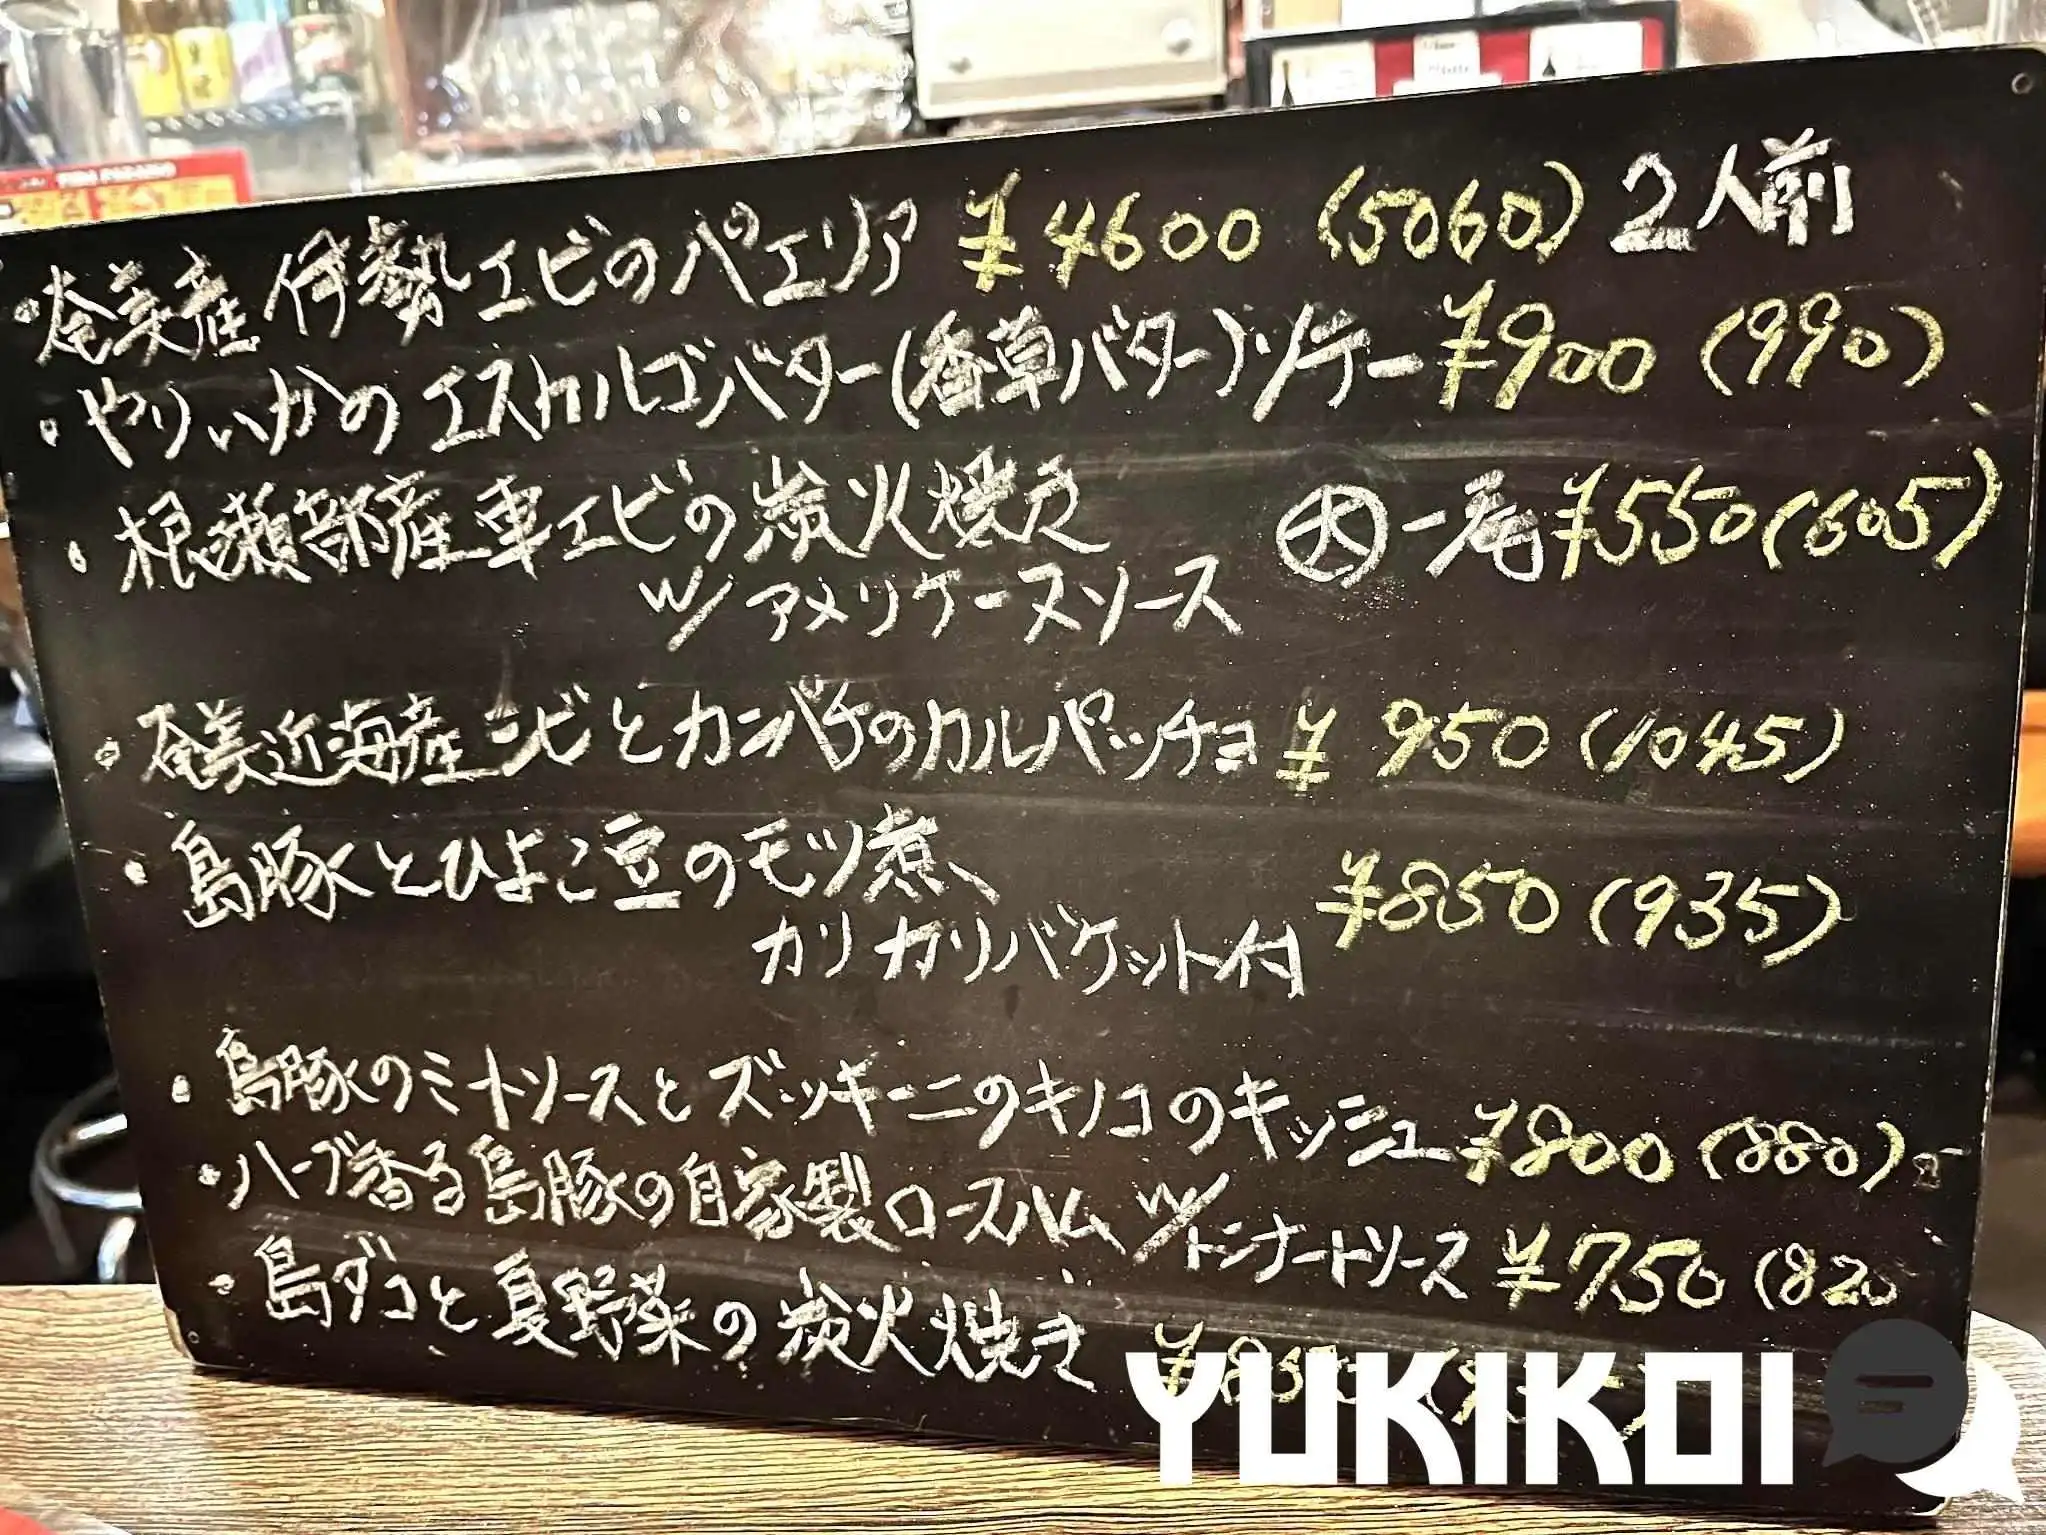 ・奄美産 伊勢エビのパエリア ¥4600 (5060) 2人前
・やりいかの エスカルゴバター(香草バター)ソテー ¥900 (990)
・根瀬部産車エビの炭火焼き 大 一尾 ¥550 (605)
w/アメリケーヌソース
・奄美近海産 シビとカンパチのカルパッチョ ¥950 (1045)
・島豚とひよこ豆のモツ煮、 ¥850 (935)
カリカリバケット付
・島豚のミートソースとズッキーニのキノコのキッシュ ¥800 (880)
・ハーブ香る島豚の自家製ロースハム w/トンナートソース ¥750 (820
・島ダコと夏野菜の炭火焼き ¥850
YUKIKOI